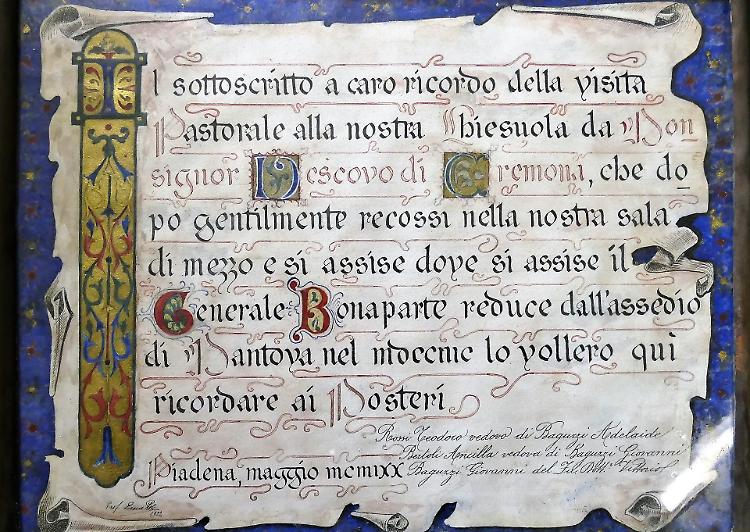 Il sottoscritto a caro ricordo della visita
Pastorale alla nostra Chiesuola da Mon
signor Vescovo di Cremona, che do
po gentilmente recossi nella nostra sala
di mezzo e si assise dove si assise il
Generale Bonaparte reduce dall'assedio
di Mantova nel mdccxcix lo vollero quì
ricordare ai Posteri
Rossi Teodoro vedovo di Baguzzi Adelaide
Bertoli Ancilla vedova di Baguzzi Giovanni
Piadena, maggio mcmixx Baguzzi Giovanni del